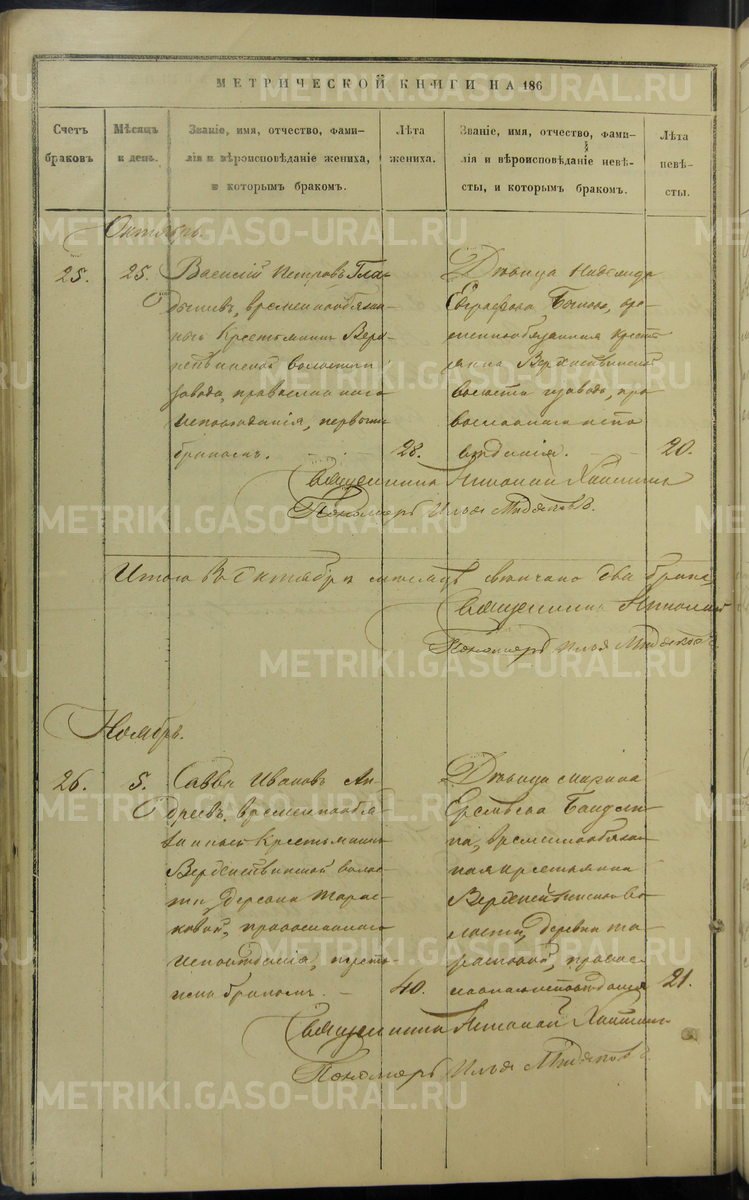 МЕТРИЧЕСКОЙ КНИГИ НА 186
Счетъ браковъ
Мѣсяцъ и день.
Званіе, имя, отчество, фами-
лія и вѣроисповѣданіе жениха,
и которымъ бракомъ.
Лѣта жениха.
Званіе, имя, отчество, фами-
лія и вѣроисповѣданіе невѣ-
сты, и которымъ бракомъ.
Лѣта невѣ-
сты.
Октябрь.
25.
25.
Василій Петровъ Гла-
временнообязан-
ный Крестьянинъ Верх-
волости
завода, православнаго
исповѣданія, первымъ
бракомъ.
28.
Дѣвица Надежда
Евграфова вре-
меннообязанная крест-
янка
волости завода, пра-
вославнаго испо
вѣданія.
20.
Священникъ Николай
Пономарь Илья
Итого въ Октябрѣ мѣсяцѣ вѣнчано два брака,
Священникъ Николай
Пономарь Илья
Ноябрь.
26.
5.
Савва Ивановъ Ан-
дреевъ, временнообя-
занный Крестьянинъ
воло-
сти, деревни Тарас-
ковой, православнаго
исповѣданія, первы-
мъ бракомъ.
40.
Дѣвица Марина
временнообязан-
ная крестьянка
во-
лости, деревни Та-
расковой, правос-
лавнаго исповѣданія
21.
Священникъ Николай
Пономарь Илья
METRIKI.GASO-URAL.RU